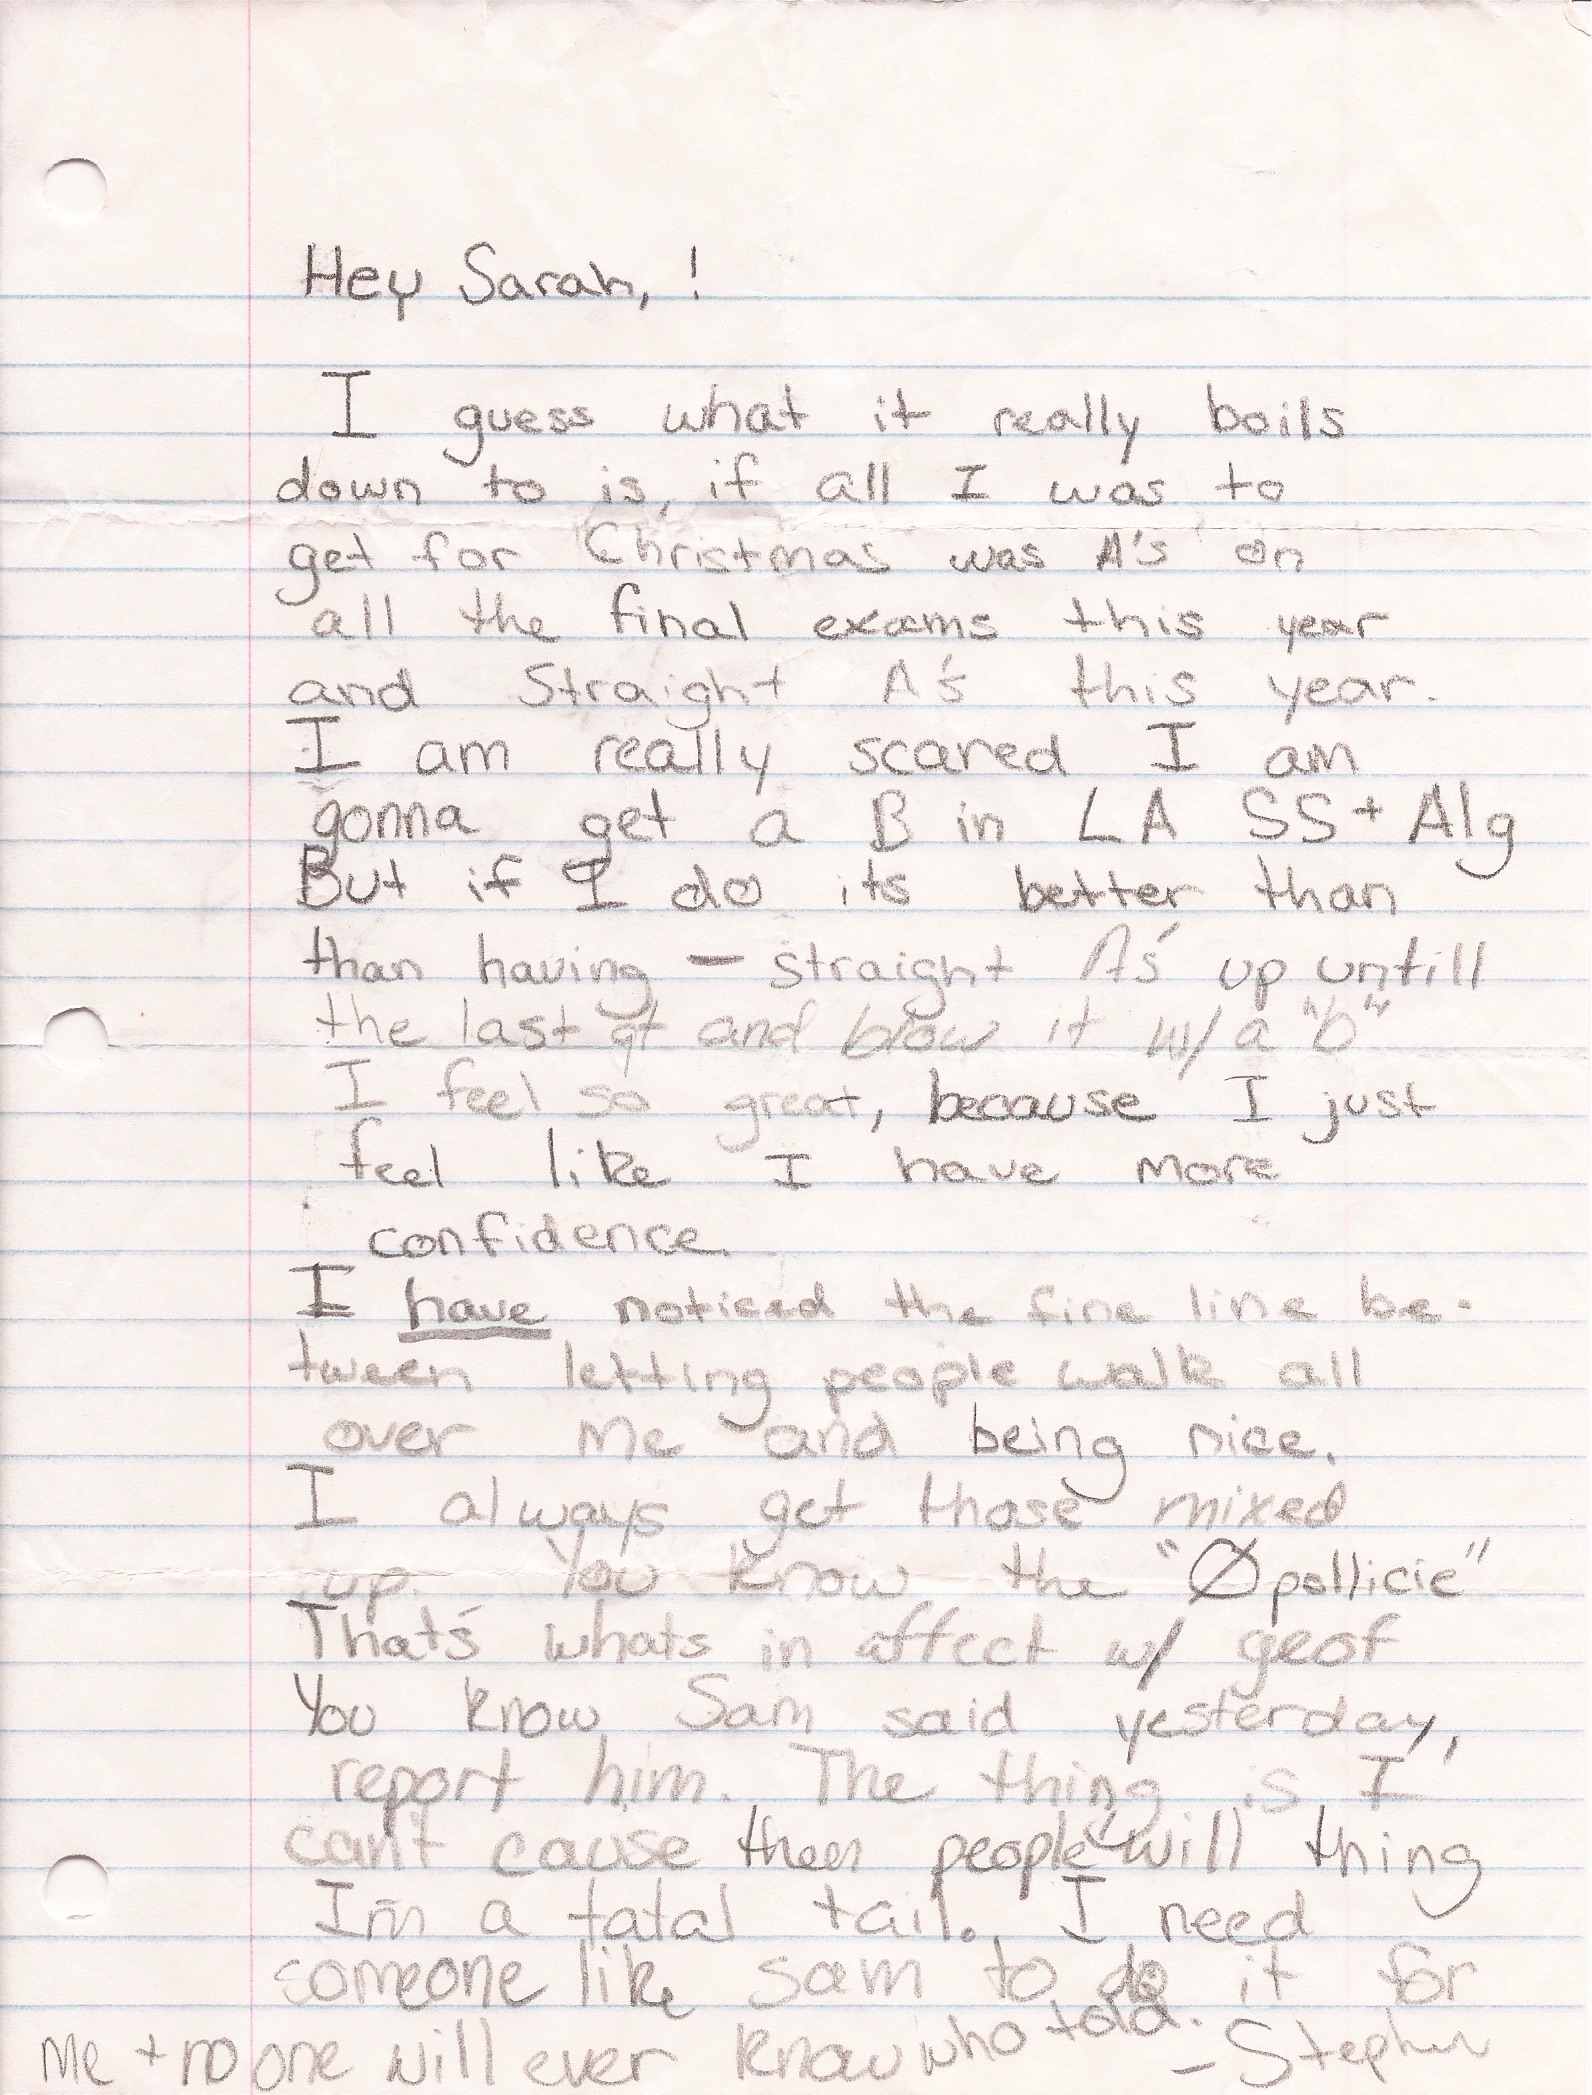 Hey Sarah, !
I guess what it really boils
down to is, if all I was to
get for Christmas was A's on
all the final exams this year
and Straight A's this year.
I am really scared I am
gonna get a B in LA SS + Alg
But if I do its better than
than having - straight A's up untill
the last qt and blow it w/ a "b"
I feel so great, because I just
feel like I have more
confidence.
I have noticed the fine line be-
tween letting people walk all
over me and being nice.
I always get those mixed
up. You know the "Øpollicie"
That's whats in affect w/ geof
You know Sam said yesterday,
report him. The thing is I
can't cause then people will thing
I'm a tatal tail. I need
someone like sam to do it for
me + no one will ever know who told.
- Stephen